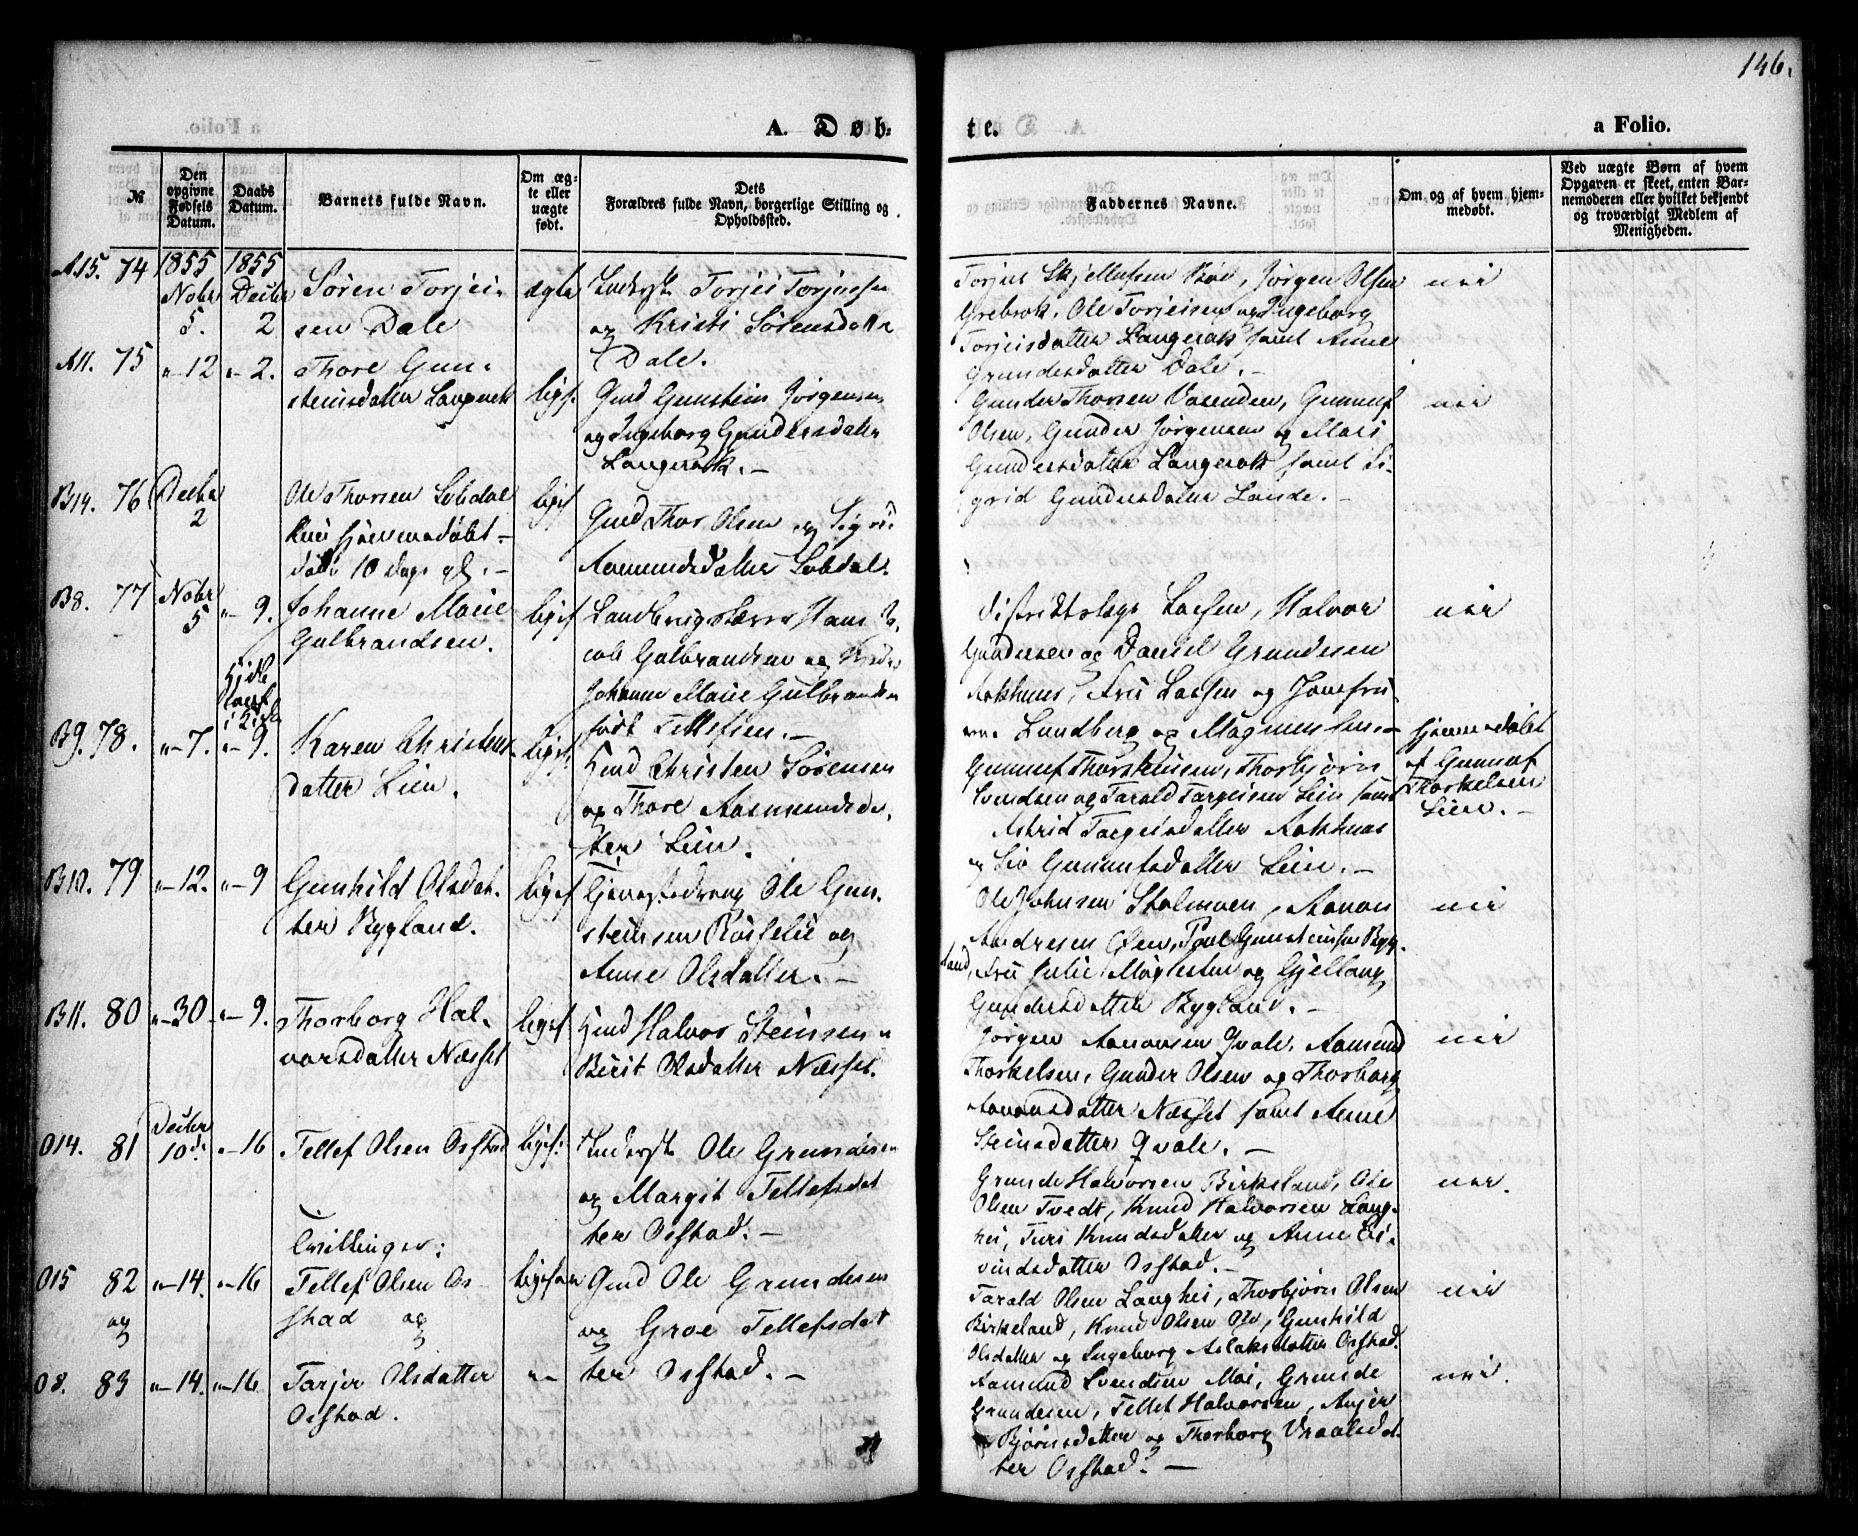 146.
A. Døb=
te.
a Folio.
№
Den opgivne Fødsels Datum.
Daabs Datum.
Barnets fulde Navn.
Om ægte eller uægte født.
Dets Forældres fulde Navn, borgerlige Stilling og Opholdssted.
Faddernes Navne.
Om og af hvem hjemmedøbt.
Ved uægte Børn af hvem Opgaven er skeet, enten Barnemoderen eller hvilket bekjendt og troværdigt Medlem af Menigheden.
A15. 74
1855 Nobr 5.
1855 Decbr 2
Søren Torjei-
sen Dale
ægte
Torjei Torjeisen
og Kristi Sørensdatter
Dale.
Torjus Skjellufsen Bøe, Jørgen Olsen
Grebrok, Ole Torjeisen og Ingeborg
Torjeisdatter Langerak samt Anne
Grundesdatter Dale. -
nei
A11. 75
"-12
"- 2.
Thore Gun-
steinsdatter Langerak
ligs.
Gmd Gunstein Jørgensen
og Ingeborg Gundersdatter
Langerak. -
Gunder Thorsen Vasenden, Gunnuf
Olsen, Gunder Jørgensen og Mari
Gundersdatter Langerak samt Si-
grid Gundersdatter Lande. -
nei
B14. 76
Decbr 2
Ole Thorsen Lobdal
kun hjemmedøbt -
døde 10 Dage gl. -
ligs
Gmd Thor Olsen og Sigrid
Aamundsdatter Lobdal.
B8. 77
Nobr 5
"- 9.
Johanne Marie
Gulbrandsen.
ligs
Landbrugslærer Hans
Gulbrandsen og
Johanne Marie Gulbrandsen
født Tellefsen. -
Distriktslæge Larsen, Halvor
Gundersen og Daniel Grundesen
Aakhus, Fru Larsen og Jomfru-
erne Lundberg og Magnussen -
nei
B9. 78.
"- 7.
"- 9.
Karen Christens-
datter Lien.
ligs.
Hmd Christen Sørensen
og Thore Aasmundsdat-
ter Lien.
Gunnuf Thorkelsen, Thorbjørn
Svendsen og Tarald Targeisen Lien samt
Astrid Targeisdatter Aakhus
og Siv Gunnufsdatter Lien. -
hjemmedøbt
af Gunnuf
Thorkelsen
Lien. -
B10. 79
"-12.
"- 9
Gunhild Olsdat-
ter Bygland.
ligs
Tjenestedreng Ole Gun-
steinsen og
Anne Olsdatter. -
Ole Johnsen Stalmoen, Aanon
Andresen Osen, Povl Gunsteinsen Byg-
land, Fru Julie Møglestue og Gjellaug
Gundersdatter Bygland. -
nei
B11. 80
"-30
"- 9.
Thorborg Hal-
vorsdatter Næsset
ligs
Hmd Halvor Steinsen &
Birit Olsdatter Næsset.
Jørgen Aanonsen Qvale, Aamund
Thorkelsen, Gunder Olsen og Thorborg
Aanonsdatter Næsset samt Anne
Steinsdatter Qvale. -
nei
O14. 81
Decbr 10de
"-16
Tellef Olsen Ossstad
ligs.
Ole Grundesen
og Margit Tellefsdat
ter Ossstad. -
Grunde Halvorsen Birkeland, Ole
Olsen Tvedt, Knud Halvorsen Lang-
hei, Turi Knudsdatter og Anne Ei-
vindsdatter Ossstad. -
nei.
Tvillinger:
O15 82
og
"-14.
"-16
Tellef Olsen Os-
stad og
Gmd Ole Grundesen
og Groe Tellefsdat
ter Ossstad. -
Tarald Olsen Langhei, Thorbjørn Olsen
Birkeland, Knud Olsen Ose, Gunhild
Olsdatter og Ingeborg Aslaksdatter Ossstad.
nei
O8. 83
"-14.
"-16
Tarjer Olsdatter
Ossstad.
"-
Aamund Svendsen Moi, Grunde
Grundesen, Tellef Halvorsen, Anjer
Bjørnsdatter og Thorborg Vraalsdat-
ter Ossstad. -
nei.